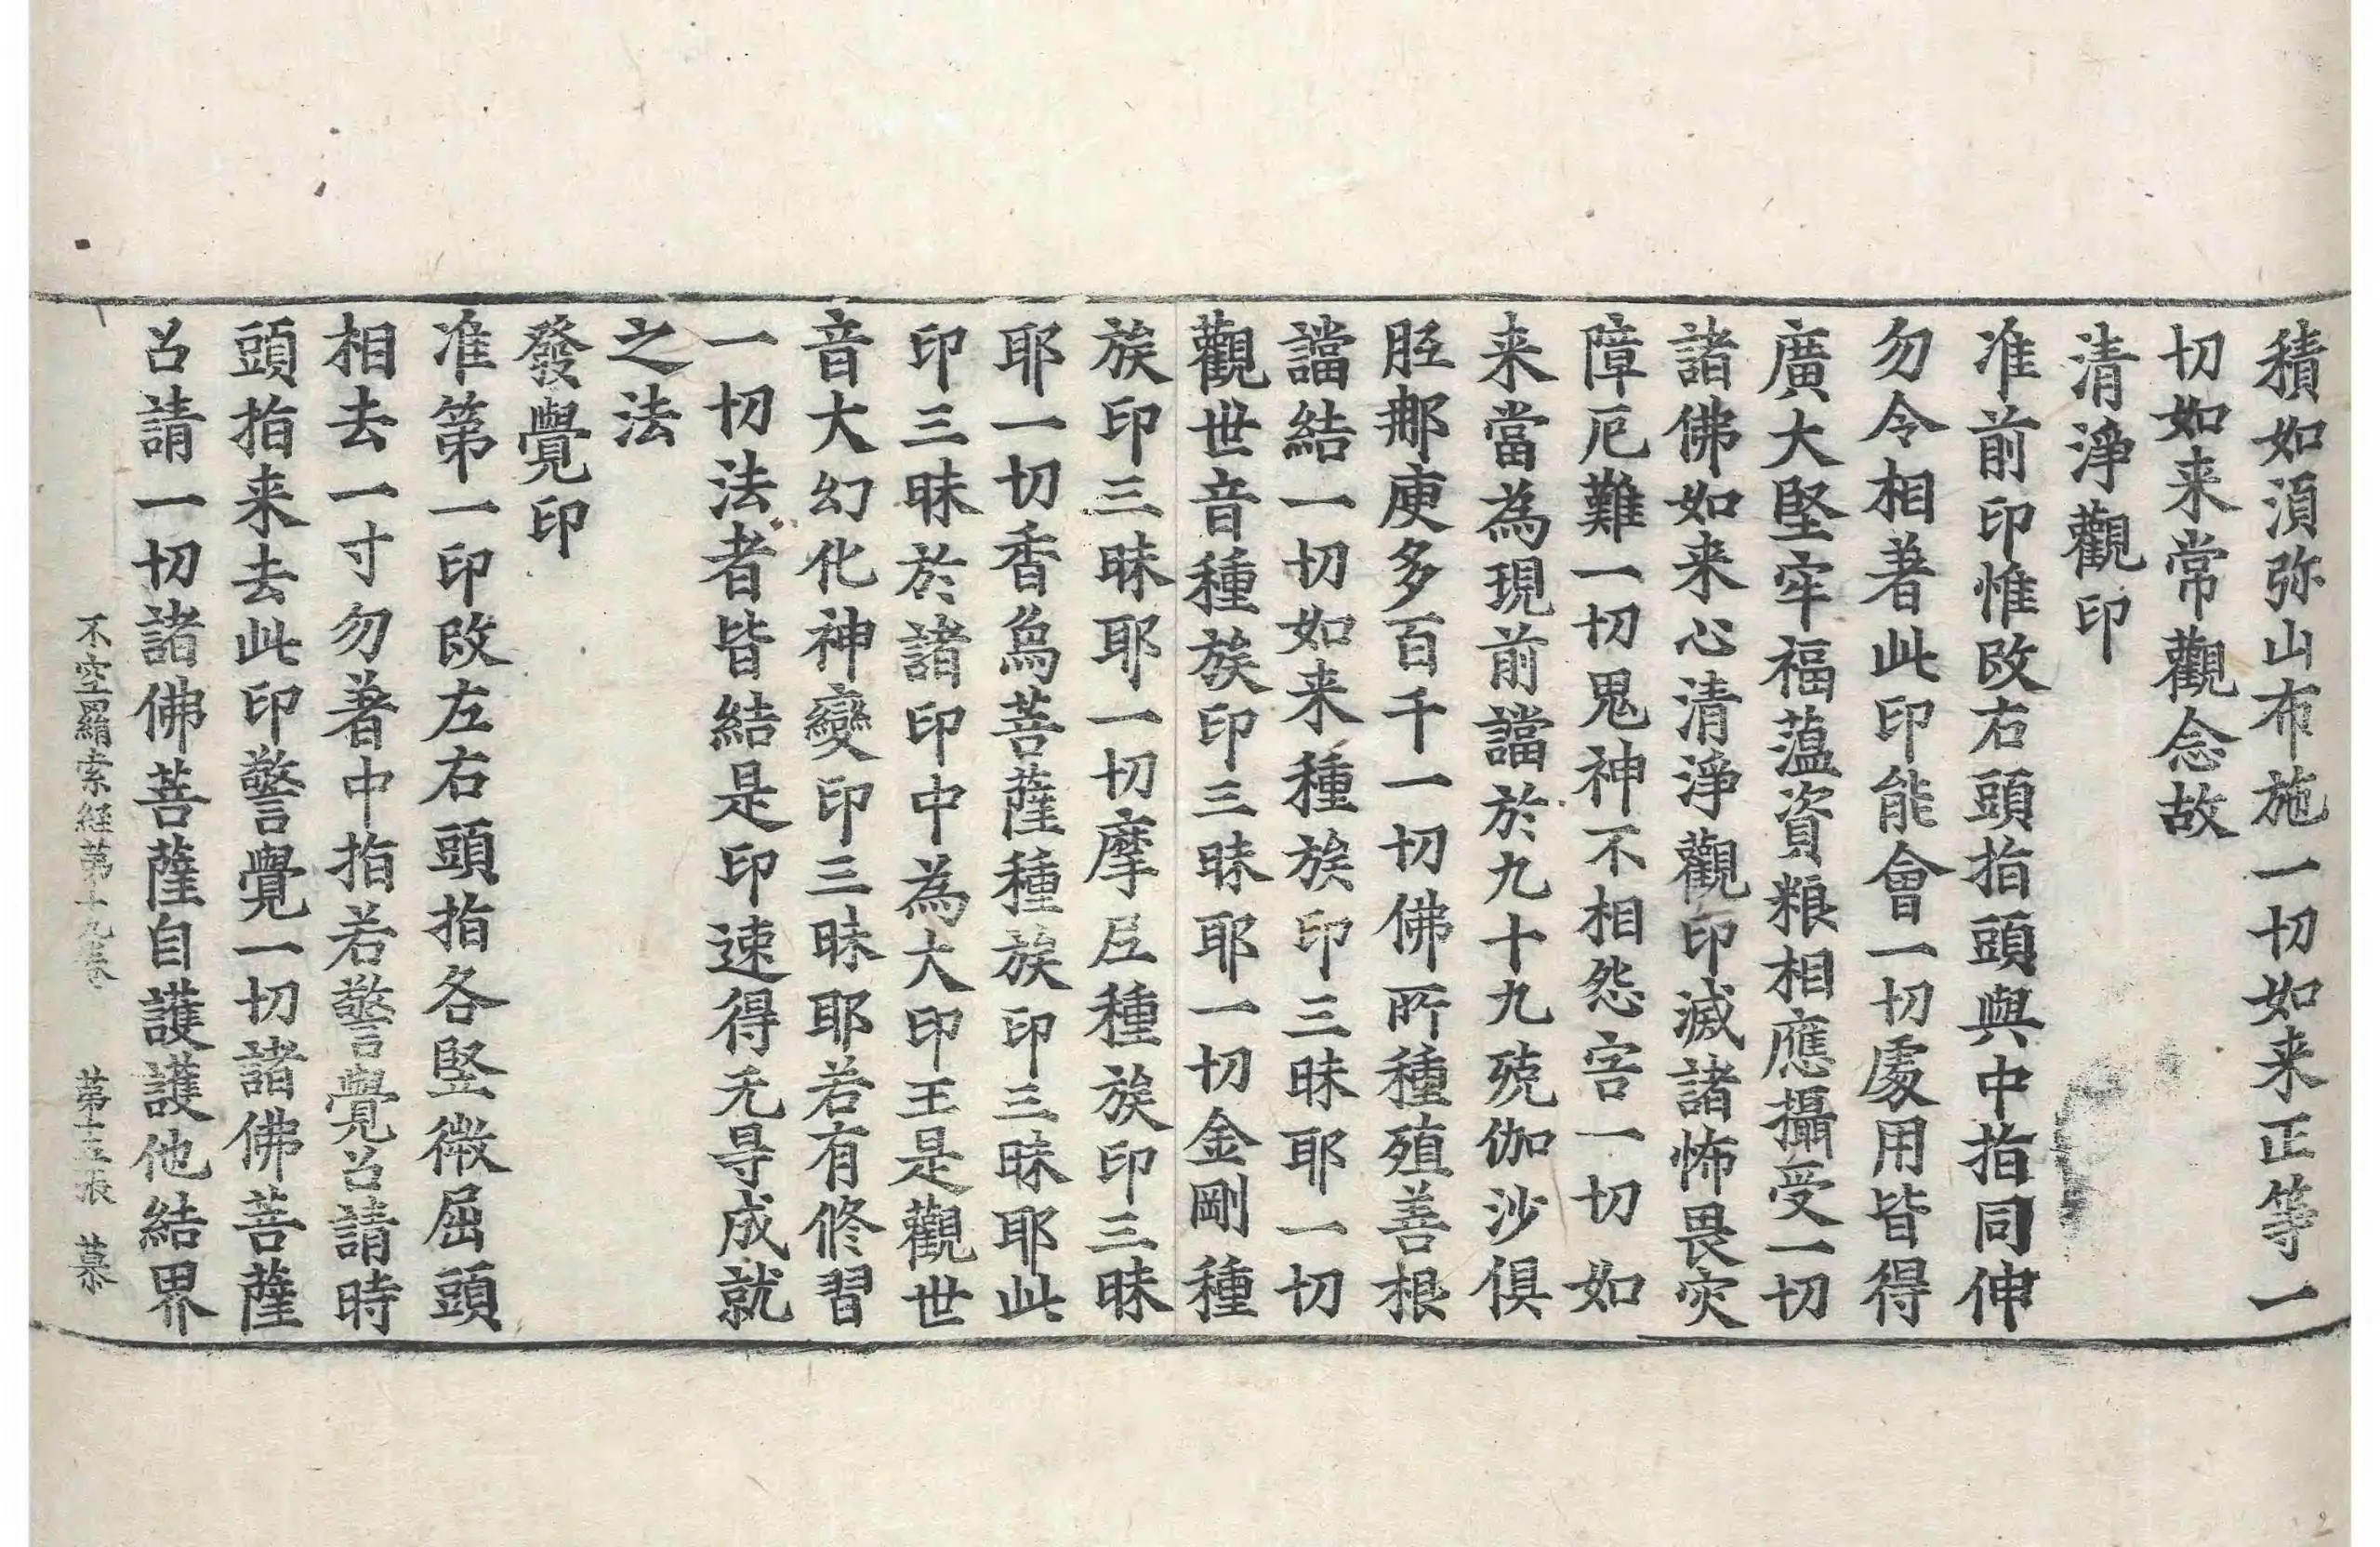 積如湏弥山布施一切如来正等一
切如来常觀念故
清淨觀印
准前印惟改右頭指頭與中指同伸
勿令相著此印能會一切處用皆得
廣大堅牢福蕰資粮相應攝受一切
諸佛如来心清淨觀印滅諸怖畏灾
障厄難一切鬼神不相怨害一切如
来當為現前讜於九十九殑伽沙俱
胝那庾多百千一切佛所種殖善根
讜結一切如来種族印三昧耶一切
觀世音種族印三昧耶一切金剛種
族印三昧耶一切摩尼種族印三昧
耶一切香烏菩薩種族印三昧耶此
印三昧於諸印中為大印王是觀世
音大幻化神變印三昧耶若有修習
一切法者皆結是印速得无㝵成就
之法
發覺印
准第一印改左右頭指各竪微屈頭
相去一寸勿著中指若警覺召請時
頭指来去此印警覺一切諸佛菩薩
召請一切諸佛菩薩自護護他結界
不空羂索經第十九卷 第十五張 慕